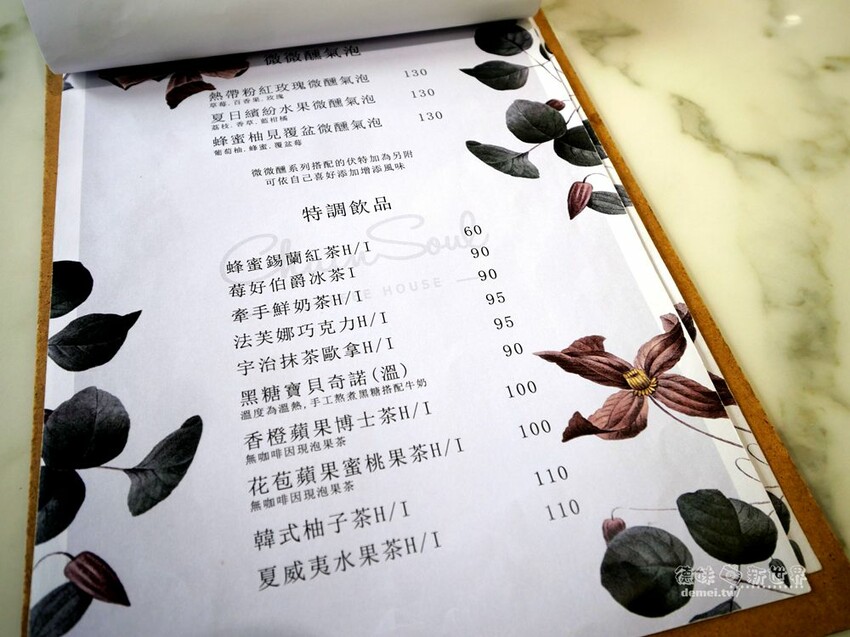 微微醺氣泡
熱帶粉紅玫瑰微醺氣泡 130
草莓.百香果.玫瑰
夏日繽紛水果微醺氣泡 130
荔枝.香草.藍柑橘
蜂蜜柚見覆盆莓微醺氣泡 130
葡萄柚.蜂蜜.覆盆莓
微微醺系列搭配的伏特加為另附
可依自己喜好添加增添風味
特調飲品
蜂蜜錫蘭紅茶H/I 60
莓好伯爵冰茶I 90
牽手鮮奶茶H/I 90
法芙娜巧克力H/I 95
宇治抹茶歐拿H/I 95
黑糖寶貝奇諾(溫) 90
溫度為溫熱,手工熬煮黑糖搭配牛奶
香橙蘋果博士茶H/I 100
無咖啡因現泡果茶
花苞蘋果蜜桃果茶H/I 100
無咖啡因現泡果茶
韓式柚子茶H/I 110
夏威夷水果茶H/I 110
Soul
HOUSE
德味 新世界
demei.tw/